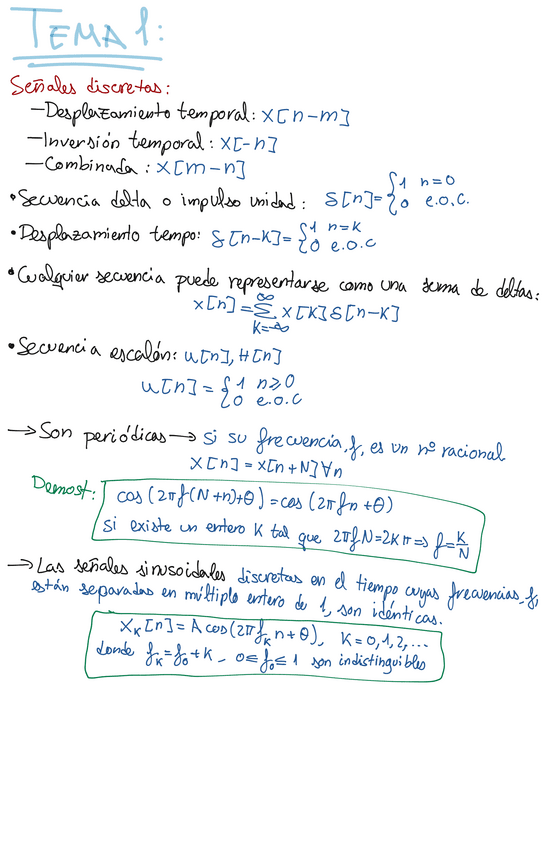 TEMA 1:
Señales discretas:
—Desplazamiento temporal: x[n-m]
—Inversión temporal: x[-n]
—Combinada: x[m-n]
•Secuencia delta o impulso unidad: δ[n]={1 n=0
0 e.o.c.
•Desplazamiento tempo: δ[n-k]={1 n=k
0 e.o.c
•Cualquier secuencia puede representarse como una suma de deltas:
x[n]=∑ x[k]δ[n-k]
k=-∞ ∞
•Secuencia escalón: u[n], H[n]
u[n]={1 n≥0
0 e.o.c
→Son periódicas→ si su frecuencia, f, es un nº racional
x[n]=x[n+N]∀n
Demost: cos(2πf(N+n)+θ)=cos(2πfn+θ)
Si existe un entero k tal que 2πfN=2kπ⇒ f=k/N
→Las señales sinusoidales discretas en el tiempo cuyas frecuencias, f,
están separadas en múltiplo entero de 1, son idénticas.
xₖ[n]=A cos(2πfₖn+θ), k=0,1,2,...
donde fₖ=f₀+k, 0≤f₀≤1 son indistinguibles